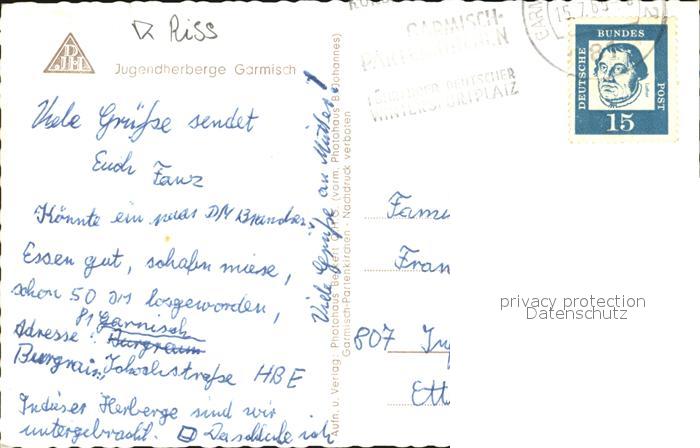 Riss
Jugendherberge Garmisch
Viele Grüße sendet
Euch Franz
Könnte ein paar DM Brauchen
Essen gut, schlafen miese,
schon 50 DM losgeworden,
81 Garmisch
Adresse: Burgrain
Burgrain, Jochstraße HBE
In dieser Herberge sind wir
untergebracht. Da schlafe ich
Viele Grüße an Mutter!
Aufn. u. Verlag Photohaus (vorm. Photohaus B. Johannes)
Garmisch-Partenkirchen - Nachdruck verboten
GARMISCH-
PARTENKIRCHEN
DEUTSCHER
WINTERSPORTPLATZ
15.7.63
DEUTSCHE
BUNDES
POST
15
Fam
Fran
807 In
Ett
privacy protection
Datenschutz